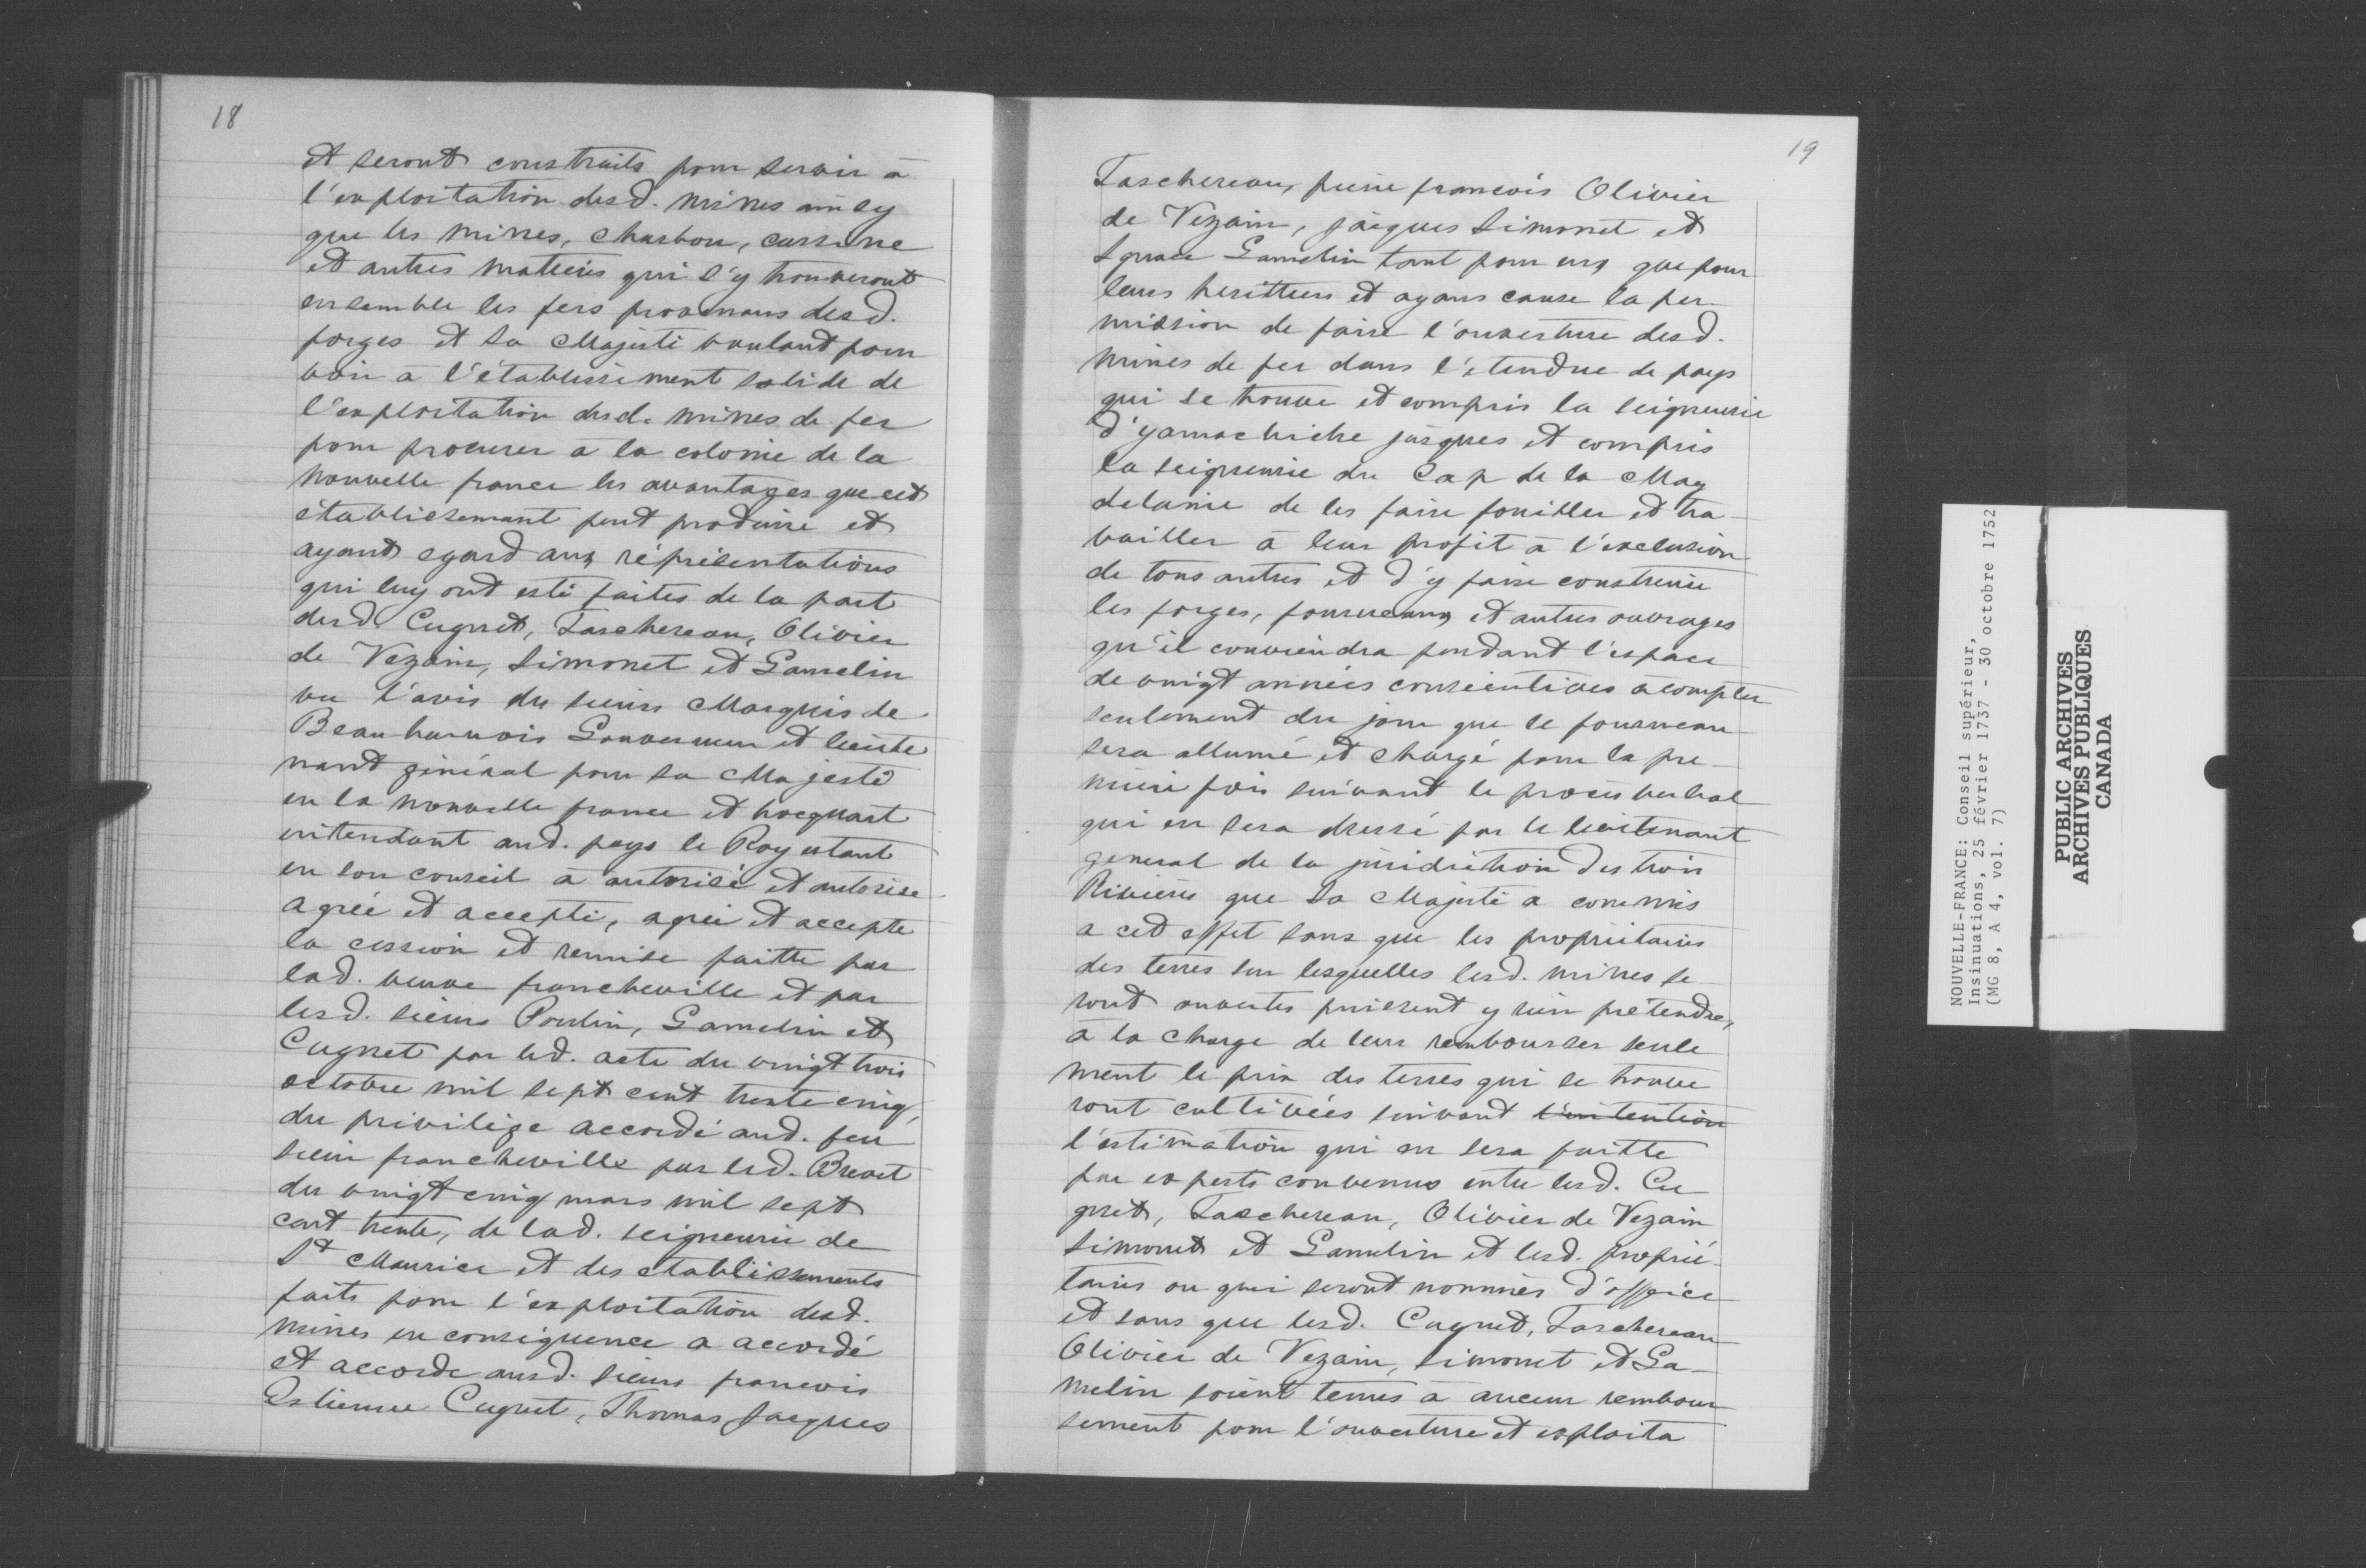 18
et seront construits pour servir à
l'exploitation desd. mines ainsy
que les mines, charbon, castine
et autres matieres qui s'y trouveront
ensemble les fers provenans desd.
forges et Sa Majesté voulant pour
voir à l'établissement solide de
l'exploitation desd. mines de fer
pour procurer à la colonie de la
nouvelle france les avantages que cet
établissement peut produire et
ayant egard aux représentations
qui luy ont esté faites de la part
desd. Cugnet, Taschereau, Olivier
de Vezain, Simonet et Gamelin
vu l'avis du sieurs Marquis de
Beauharnois Gouverneur et lieute
nant général pour sa Majesté
en la nouvelle france et hocquart
intendant aud. pays le Roy estant
en son conseil à autorisé et autorise
agréé et accepté, agréé et accepte
la cession et remise faitte par
lad. veuve francheville et par
lesd. sieurs Poulin, Gamelin et
Cugnet par led. acte du vingt trois
octobre mil sept cent trente cinq,
du privilège accordé aud. feu
sieur francheville par led. Brevet
du vingt cinq mars mil sept
cent trente, de lad. seigneurie de
St Maurice et des etablissements
faits pour l'exploitation desd.
mines en conséquence a accordé
et accorde ausd. sieurs francois
Estienne Cugnet, Thomas Jacques
19
Taschereau, pierre francois Olivier
de Vezain, jacques Simonet et
Ignace Gamelin tant pour eux que pour
leurs herittiers et ayans cause la per-
mission de faire l'ouverture desd.
mines de fer dans l'étendue de pays
qui se trouve et compris la seigneurie
d'yamachiche jusques et compris
la seigneurie du Cap de la Mag
delaine de les faire fouiller et tra-
vailler à leur profit à l'exclusion
de tous autres et d'y faire construire
les forges, fourneaux et autres ouvrages
qu'il conviendra pendant l'espace
de vingt années consécutives à compter
seulement du jour que le fourneau
sera allumé et chargé pour la pre-
miere fois suivant le procès verbal
qui en sera dressé par le lieutenant
general de la juridiction des trois
Rivières que Sa Majesté a commis
a cet effet sans que les propriétaires
des terres sur lesquelles lesd. mines se-
ront ouvertes puissent y rien prétendre,
à la charge de leur rembourser seule
ment le prix des terres qui se trouve
ront cultivées suivant l'intention
l'estimation qui en sera faitte
par experts convenus entre lesd. Cu
gnet, Taschereau, Olivier de Vezain
Simonet et Gamelin et lesd. proprié-
taires ou qui seront nommés d'office
et sans que lesd. Cugnet, Taschereau
Olivier de Vezain, Simonet et Ga-
melin soient tenus à aucun rembour
sement pour l'ouverture et exploita
NOUVELLE-FRANCE: Conseil supérieur,
Insinuations, 25 février 1737 - 30 octobre 1752
(MG 8, A 4, vol. 7)
PUBLIC ARCHIVES
ARCHIVES PUBLIQUES
CANADA